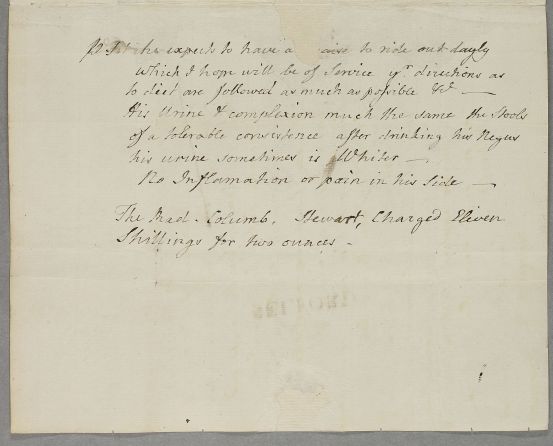 P.S. he expects to have a chaise to ride out dayly
which I hope will be of Service yr. directions as
to diet are followed as much as possible &c —
His Urine & complexion much the same the Stools
of a tolerable consistence after drinking his Negus
his urine sometimes is Whiter —
No Inflamation or pain in his Side —
The Rad. Columb. Stewart, Charged Eleven
Shillings for two ounces —